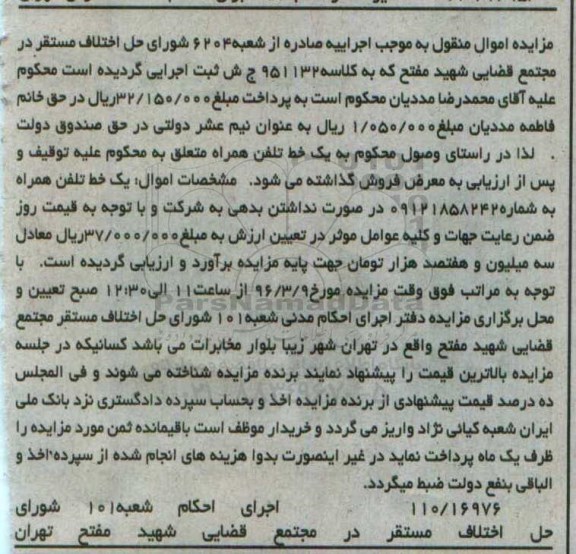 مزایده اموال منقول به موجب اجراییه صادره از شعبه۶۲۰۴ شورای حل اختلاف مستقر در
مجتمع قضایی شهید مفتح که به کلاسه۹۵۱۱۳۲ ج ش ثبت اجرایی گردیده است محکوم
علیه آقای محمدرضا مددیان محکوم است به پرداخت مبلغ۳۲/۱۵۰/۰۰۰ریال در حق خانم
فاطمه مددیان مبلغ۱/۰۵۰/۰۰۰ ریال به عنوان نیم عشر دولتی در حق صندوق دولت
. لذا در راستای وصول محکوم به یک خط تلفن همراه متعلق به محکوم علیه توقیف و
پس از ارزیابی به معرض فروش گذاشته می شود. مشخصات اموال: یک خط تلفن همراه
به شماره۰۹۱۲۱۸۵۸۲۴۲ در صورت نداشتن بدهی به شرکت و با توجه به قیمت روز
ضمن رعایت جهات و کلیه عوامل موثر در تعیین ارزش به مبلغ۳۷/۰۰۰/۰۰۰ریال معادل
سه میلیون و هفتصد هزار تومان جهت پایه مزایده برآورد و ارزیابی گردیده است. با
توجه به مراتب فوق وقت مزایده مورخ۹۶/۳/۹ از ساعت۱۱ الی۱۲:۳۰ صبح تعیین و
محل برگزاری مزایده دفتر اجرای احکام مدنی شعبه۱۰۱ شورای حل اختلاف مستقر مجتمع
قضایی شهید مفتح واقع در تهران شهر زیبا بلوار مخابرات می باشد کسانیکه در جلسه
مزایده بالاترین قیمت را پیشنهاد نمایند برنده مزایده شناخته می شوند و فی المجلس
ده درصد قیمت پیشنهادی از برنده مزایده اخذ و بحساب سپرده دادگستری نزد بانک ملی
ایران شعبه کیانی نژاد واریز می گردد و خریدار موظف است باقیمانده ثمن مورد مزایده را
ظرف یک ماه پرداخت نماید در غیر اینصورت بدوا هزینه های انجام شده از سپرده اخذ و
الباقی بنفع دولت ضبط میگردد.
۱۱۰/۱۶۹۷۶ اجرای احکام شعبه۱۰۱ شورای
حل اختلاف مستقر در مجتمع قضایی شهید مفتح تهران
ParsNamadData